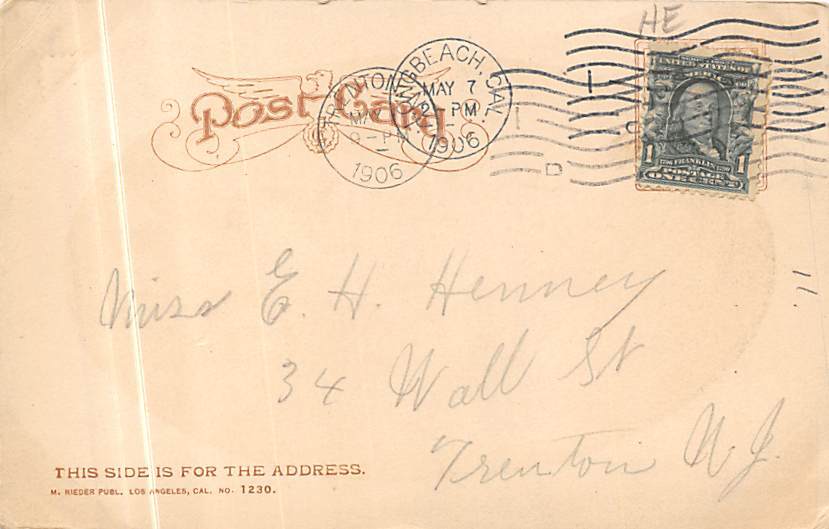 HE
Post Card
TRENTON
MAY
9-PM
1906
LONGBEACH, CAL.
MAY 7
1 PM
1906
D
UNITED STATES OF
AMERICA
1 FRANKLIN 1
POSTAGE
ONE CENT
Miss E. H. Henney
34 Wall St
Trenton N J.
THIS SIDE IS FOR THE ADDRESS.
M. RIEDER PUBL. LOS ANGELES, CAL. NO. 1230.